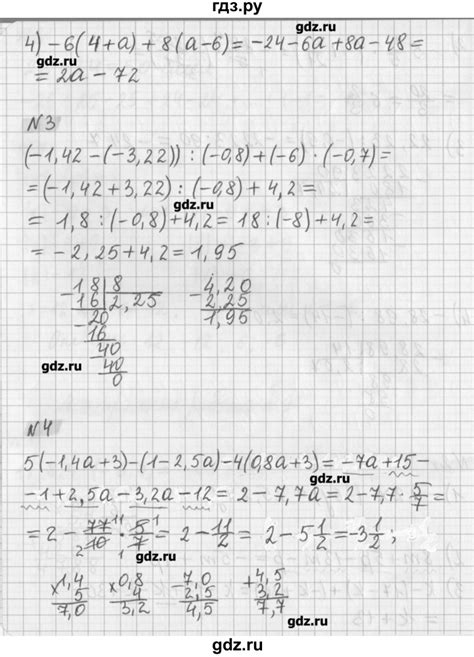 гдз.ру
4) -6(4+a)+8(a-6)=-24-6a+8a-48=
gdz.ru
gdz.ru
=2a-72
N3
gdz.ru
gdz.ru
(-1,42-(-3,22)):(-0,8)+(-6)·(-0,7)=
=(-1,42+3,22):(-0,8)+4,2=
gdz.ru
=1,8:(-0,8)+4,2=18:(-8)+4,2=
=-2,25+4,2=1,95
gdz.ru
-18|8
16 2,25
-20
16
40
40
0
-4,20
2,25
1,95
gdz.ru
gdz.ru
gdz.ru
N4
gdz.ru
gdz.ru
5(-1,4a+3)-(1-2,5a)-4(0,8a+3)=-7a+15-
-1+2,5a-3,2a-12=2-7,7a=2-7,7·5/7=
=2-77/10·5/7=2-11/2=2-5 1/2=-3 1/2;
11
1
2
1
gdz.ru
×1,4
5
7,0
×0,8
4
3,2
-7,0
2,5
4,5
+4,5
3,2
7,7
gdz.ru
gdz.ru
gdz.ru